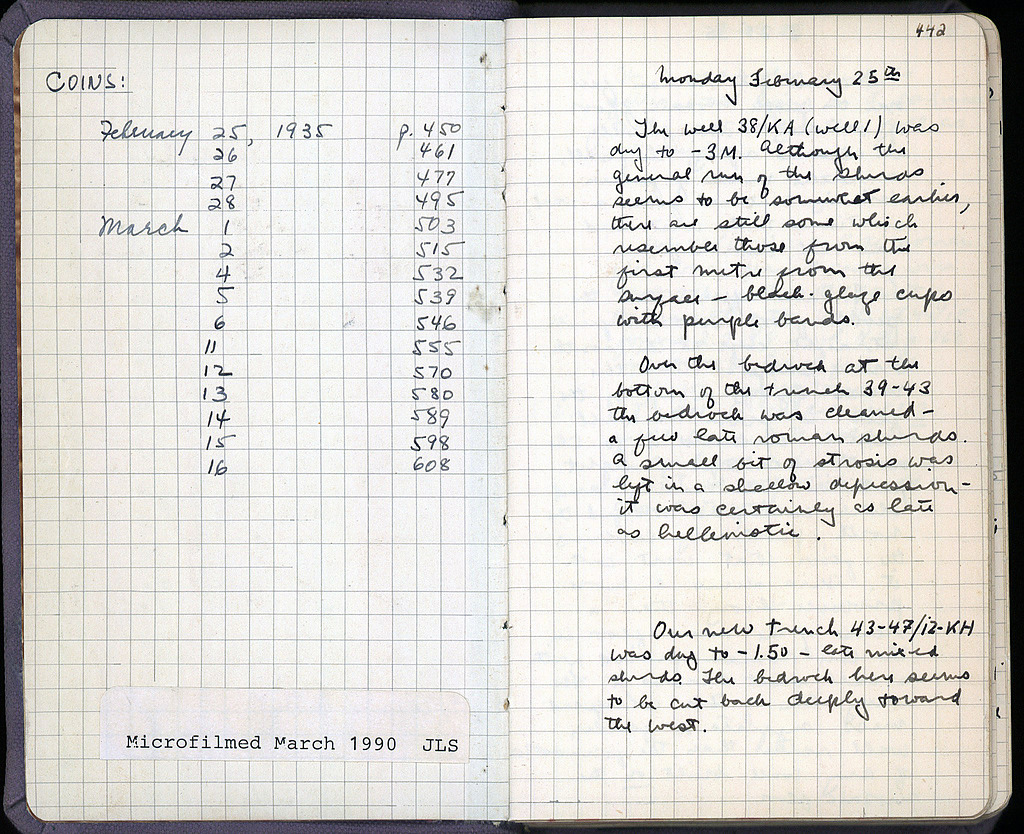 COINS:
February 25, 1935 p. 450
26 461
27 477
28 495
March 1 503
2 515
4 532
5 539
6 546
11 555
12 570
13 580
14 589
15 598
16 608
Microfilmed March 1990 JLS
442
Monday February 25th
The well 38/KA (well 1) was
dug to -3M. Although the
general run of the sherds
seems to be somewhat earlier,
there are still some which
resember those from the
first metre from the
surface - black-glaze cups
with purple bands.
Over the bedrock at the
bottom of the trench 39-43
the bedrock was cleaned-
a few late roman sherds.
A small bit of strosis was
left in a shallow depression-
it was certainly as late
as hellenistic.
Our new trench 43-47/IZ-KH
was dug to -1.50 - late mixed
sherds. The bedrock here seems
to be cut back deeply toward
the west.